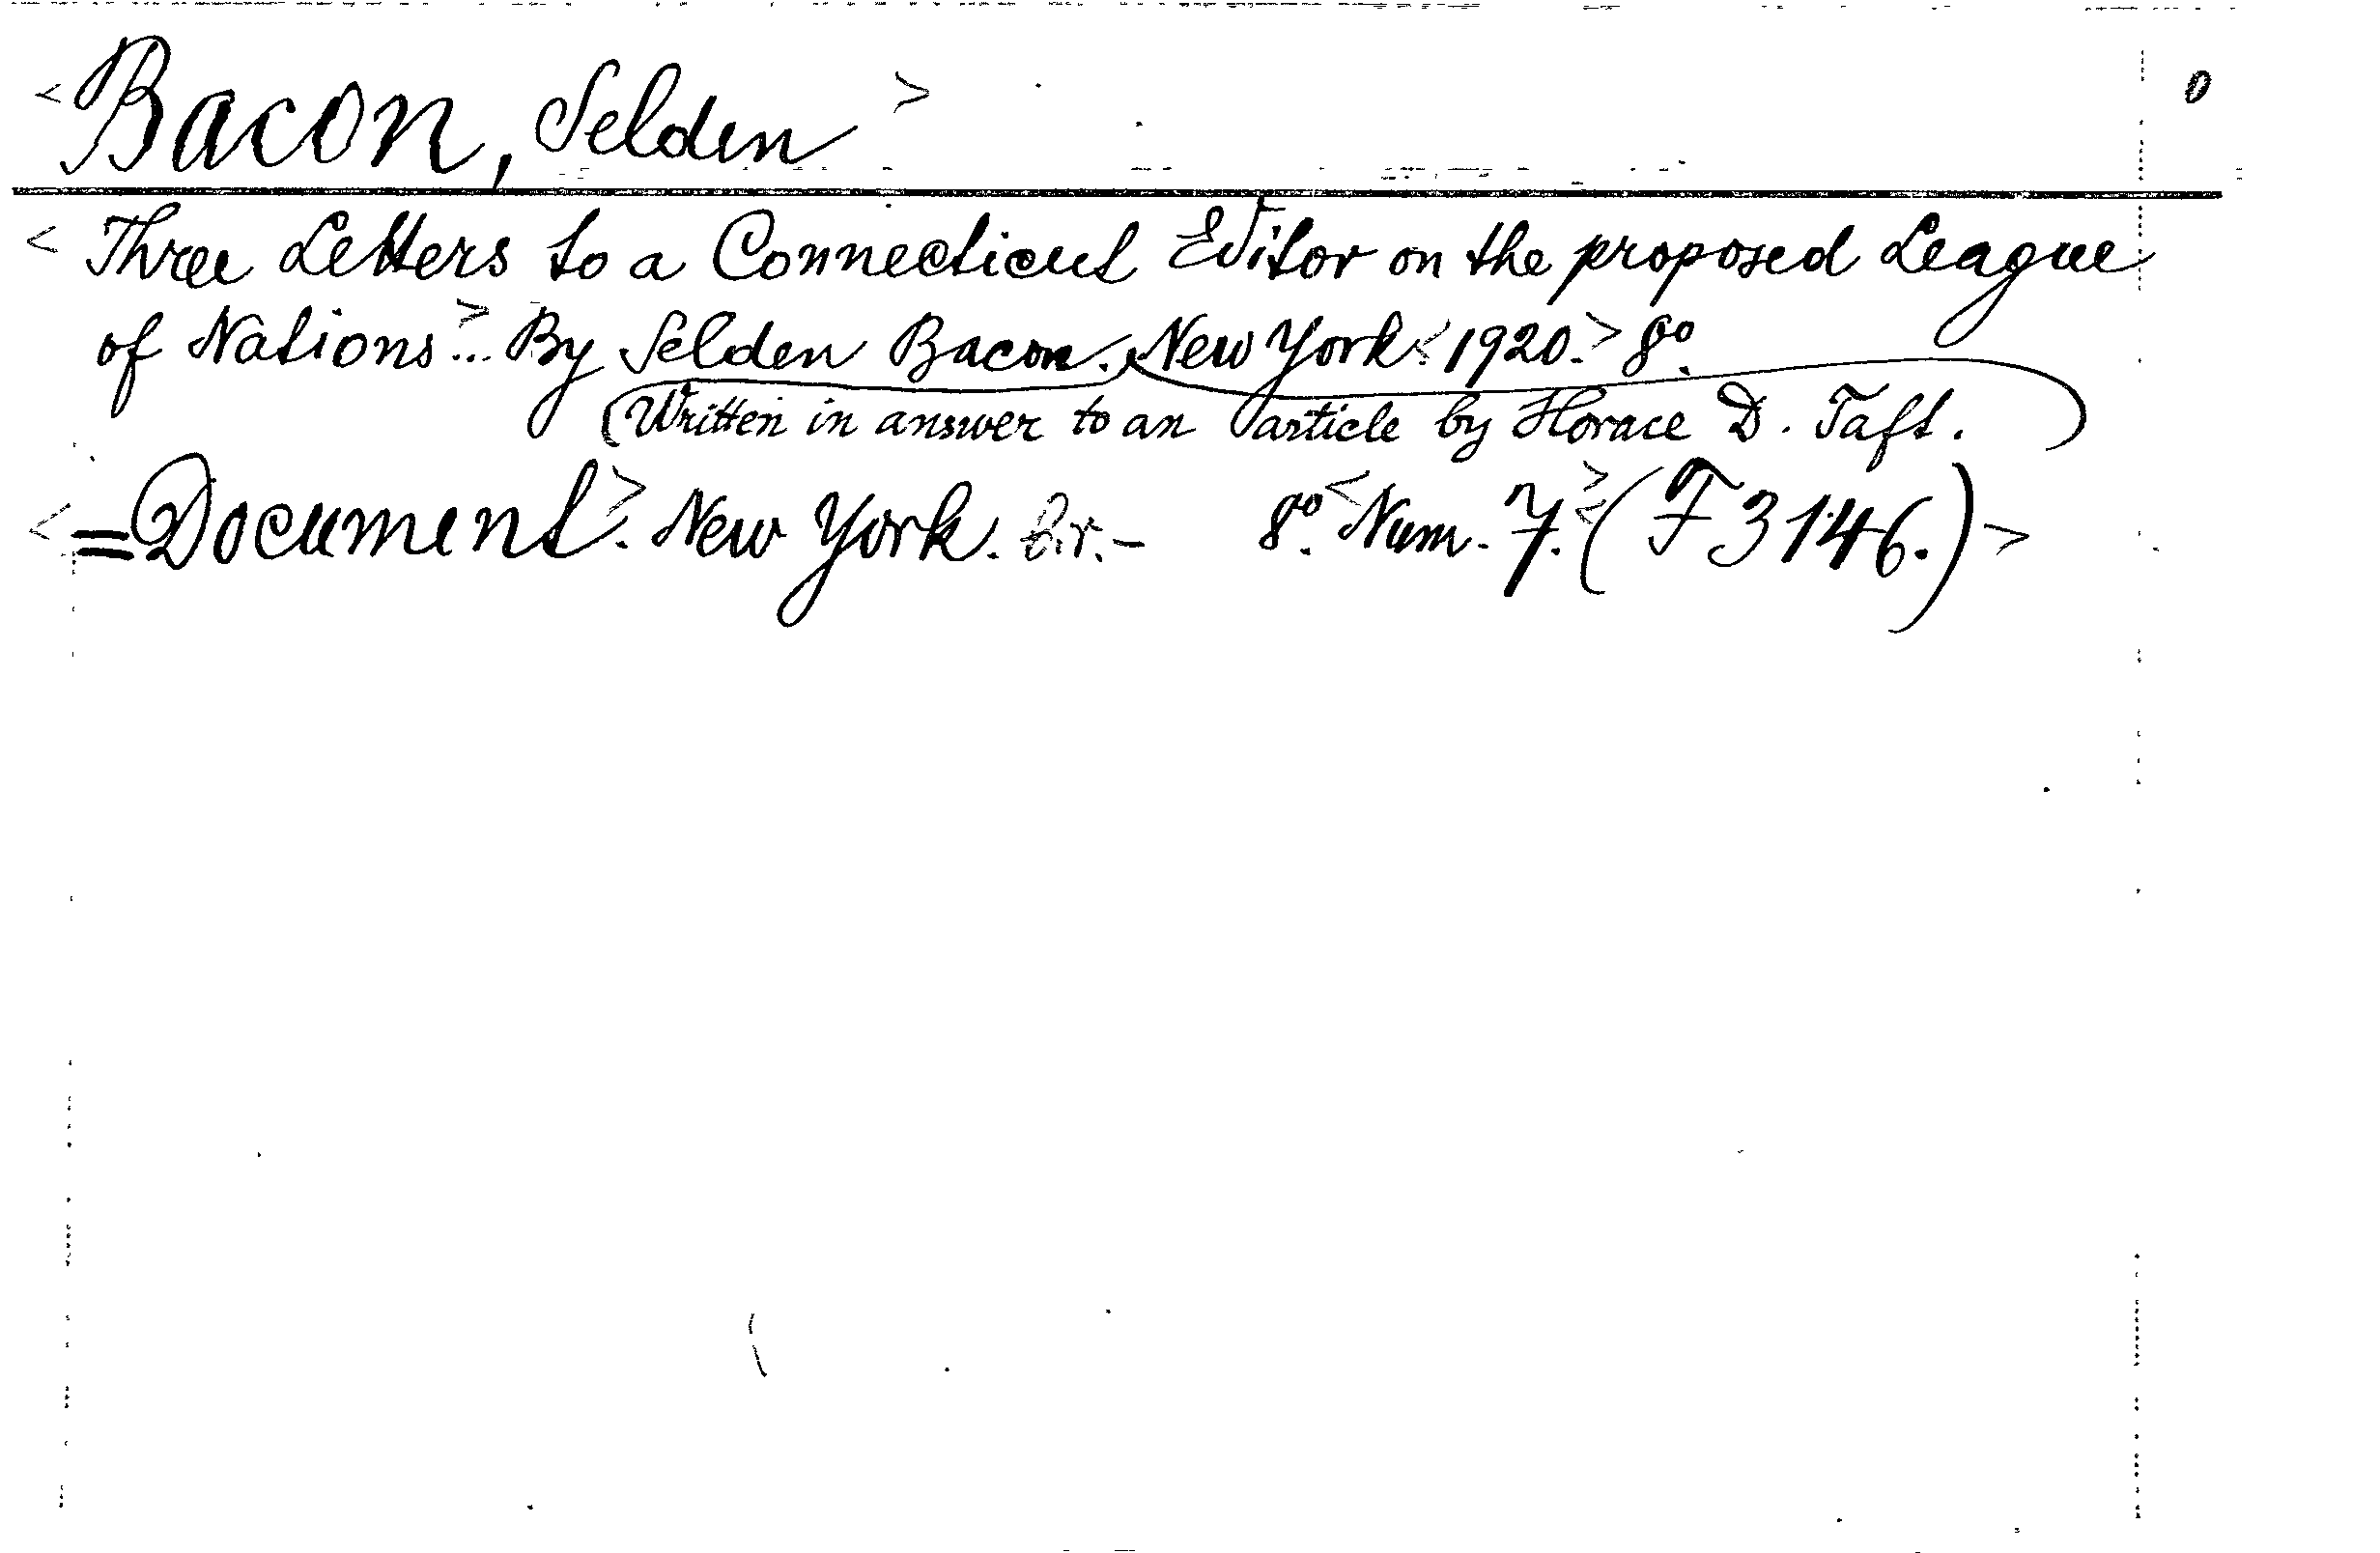 <Bacon, Selden> 0
<Three Letters to a Connecticut Editor on the proposed League
of Nations> ... By Selden Bacon. New York. <1920.> 8º.
(Written in answer to an article by Horace D. Taft. )
<=Document>. New York. 8º. <Num. 7.> <(F 3146.)>